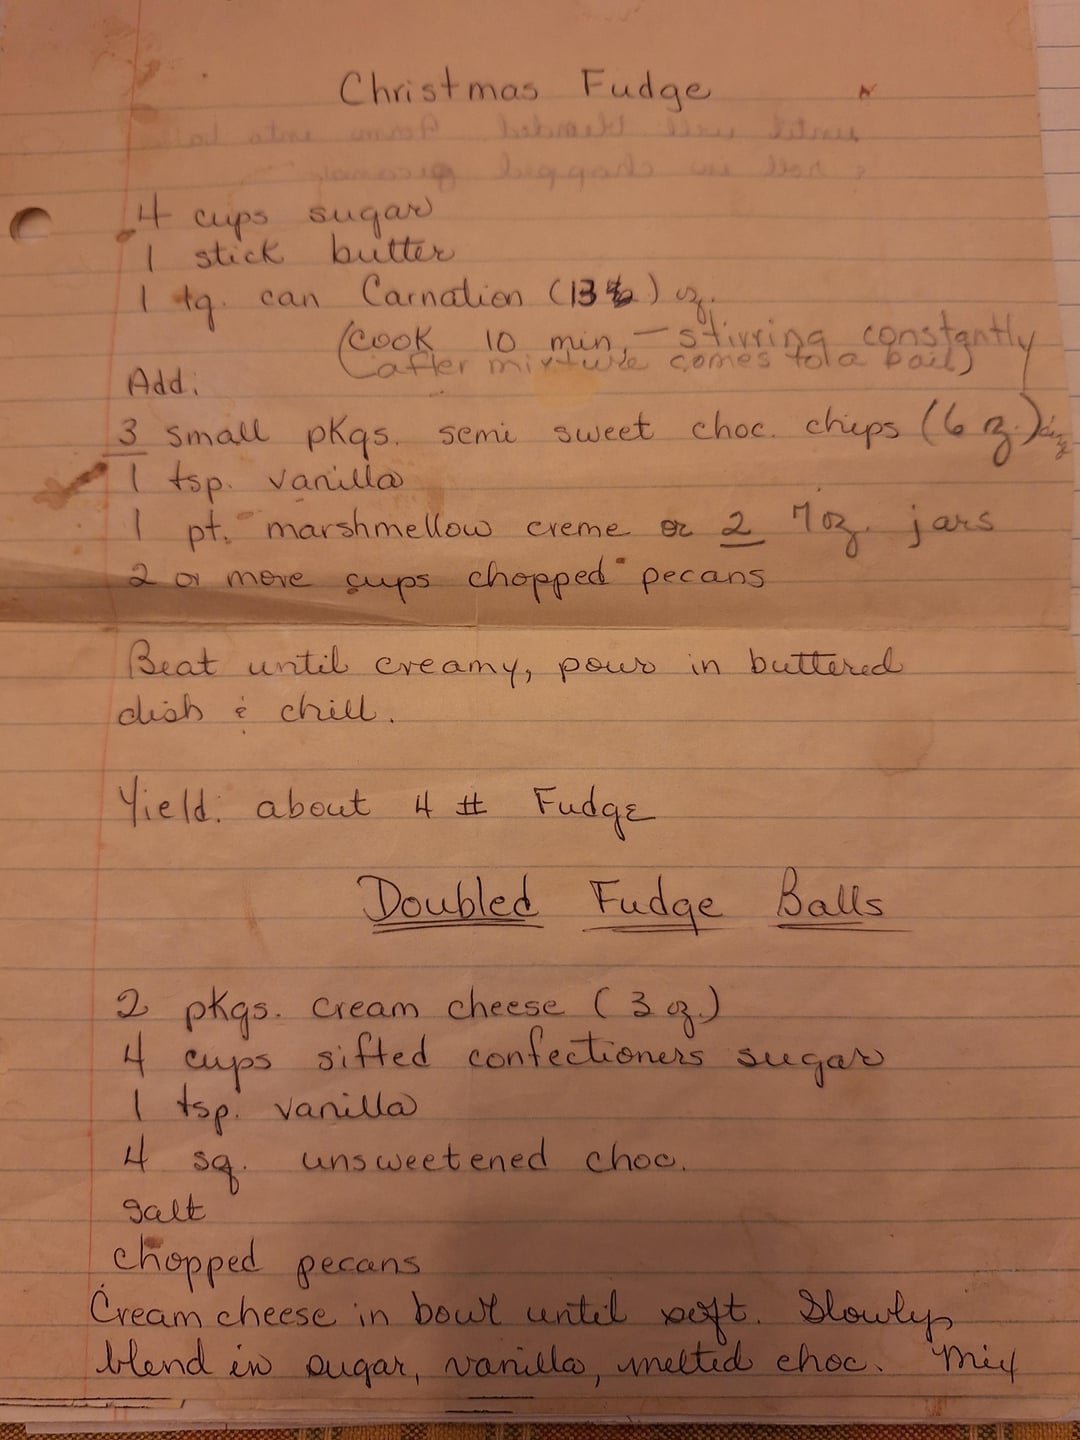 Christmas Fudge
until well blended Form into balls
& roll in chopped pecans
4 cups sugar
1 stick butter
1 lg. can Carnation (13 ) oz.
(cook 10 min, — stirring constantly
(after mixture comes to a boil)
Add:
3 small pkgs. semi sweet choc. chips (6 oz.)
1 tsp. vanilla
1 pt. marshmellow creme or 2 7 oz. jars
2 or more cups chopped pecans
Beat until creamy, pour in buttered
dish & chill.
Yield: about 4 # Fudge
Doubled Fudge Balls
2 pkgs. cream cheese (3 oz.)
4 cups sifted confectioners sugar
1 tsp. vanilla
4 sq. unsweetened choc.
salt
chopped pecans
Cream cheese in bowl until soft. Slowly
blend in sugar, vanilla, melted choc. Mix